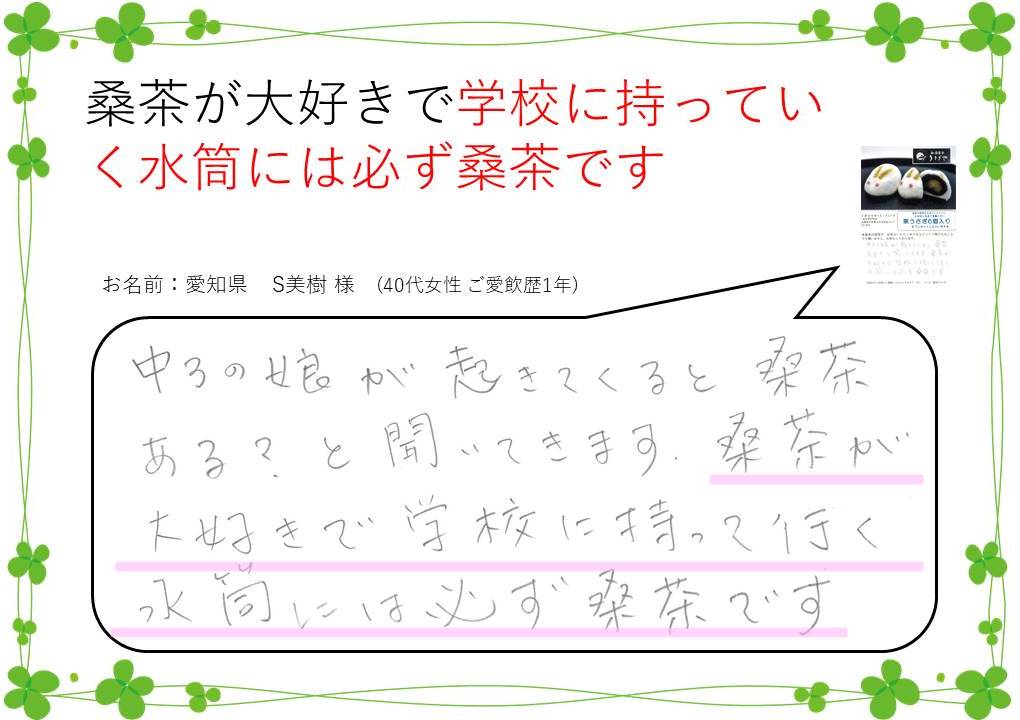 桑茶が大好きで学校に持ってい
く水筒には必ず桑茶です
お名前：愛知県　S美樹 様　(40代女性 ご愛飲歴1年)
中3の娘が起きてくると桑茶
ある？と聞いてきます. 桑茶が
大好きで学校に持って行く
水筒には必ず桑茶です